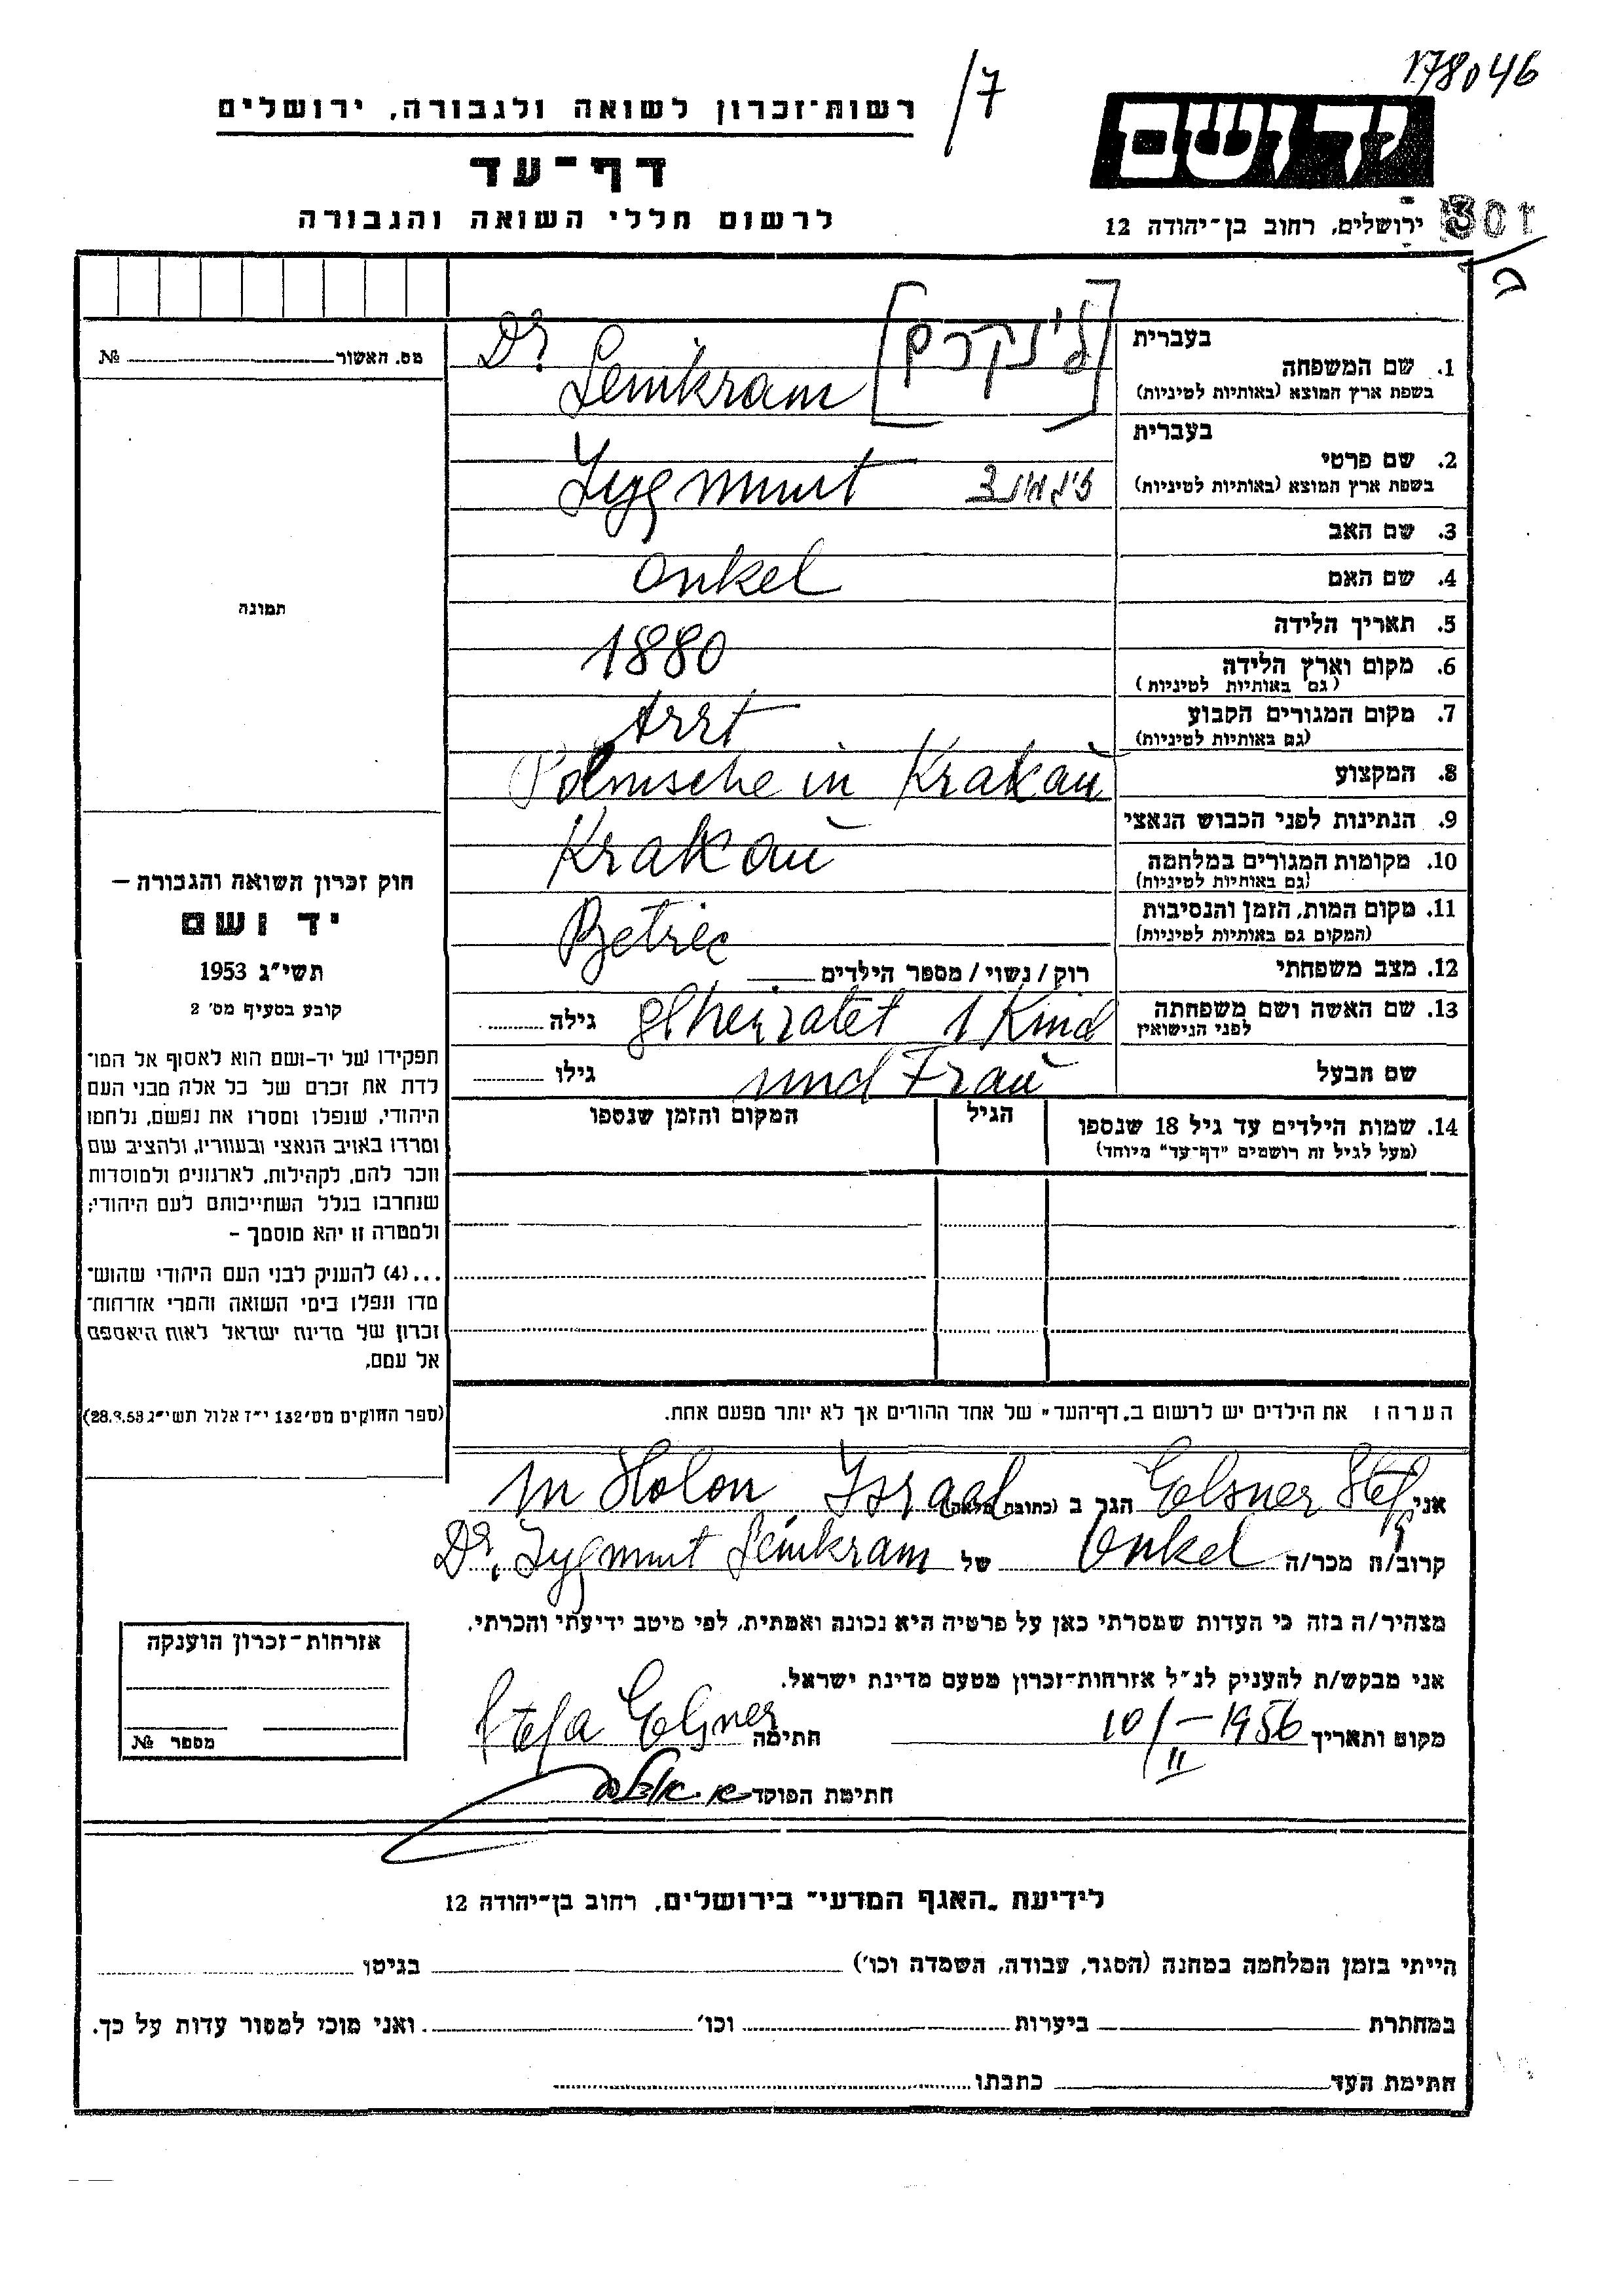 178046
/7
רשות־זכרון לשואה ולגבורה, ירושלים
דף־עד
לרשום חללי השואה והגבורה
ידושם
ירושלים, רחוב בן־יהודה 12
301
בעברית
1. שם המשפחה
בשפת ארץ המוצא (באותיות לטיניות)
Dr. Leinkram [לינקרם]
בעברית
2. שם פרטי
בשפת ארץ המוצא (באותיות לטיניות)
Zygmunt זיגמונד
3. שם האב
4. שם האם
Onkel
5. תאריך הלידה
1880
6. מקום וארץ הלידה
(גם באותיות לטיניות)
7. מקום המגורים הקבוע
(גם באותיות לטיניות)
Arzt
8. המקצוע
Polnische in Krakau
9. הנתינות לפני הכבוש הנאצי
10. מקומות המגורים במלחמה
(גם באותיות לטיניות)
Krakau
11. מקום המות, הזמן והנסיבות
(המקום גם באותיות לטיניות)
12. מצב משפחתי
רוק / נשוי / מספר הילדים
13. שם האשה ושם משפחתה
לפני הנישואין
geheiratet 1 Kind
גילה
שם הבעל
und Frau
גילו
14. שמות הילדים עד גיל 18 שנספו
(מעל לגיל זה רושמים "דף־עד" מיוחד)
הגיל
המקום והזמן שנספו
הערה: את הילדים יש לרשום ב„דף־העד" של אחד ההורים אך לא יותר מפעם אחת.
מס. האשור №
תמונה
חוק זכרון השואה והגבורה –
יד ושם
תשי"ג 1953
קובע בסעיף מס' 2
תפקידו של יד-ושם הוא לאסוף אל המו־
לדת את זכרם של כל אלה מבני העם
היהודי, שנפלו ומסרו את נפשם, נלחמו
ומרדו באויב הנאצי ובעוזריו, ולהציב שם
וזכר להם, לקהילות, לארגונים ולמוסדות
שנחרבו בגלל השתייכותם לעם היהודי;
ולמטרה זו יהא מוסמך –
...(4) להעניק לבני העם היהודי שהוש־
מדו ונפלו בימי השואה והמרי אזרחות־
זכרון של מדינת ישראל לאות היאספם
אל עמם.
(ספר החוקים מס' 132 י"ז אלול תשי"ג 28.8.53)
אני Elsner Stefa הגר ב (כתובת מלאה) in Holon Israel
קרוב/ה מכר/ה Onkel של Dr. Zygmunt Leinkram
מצהיר/ה בזה כי העדות שמסרתי כאן על פרטיה היא נכונה ואמתית, לפי מיטב ידיעתי והכרתי.
אני מבקש/ת להעניק לנ"ל אזרחות־זכרון מטעם מדינת ישראל.
מקום ותאריך 10/II – 1956 חתימה Stefa Elsner
חתימת הפוקד
אזרחות־זכרון הוענקה
מספר №
לידיעת „האגף המדעי" בירושלים, רחוב בן־יהודה 12
הייתי בזמן המלחמה במחנה (הסגר, עבודה, השמדה וכו') בגיטו
במחתרת ביערות וכו' ואני מוכן למסור עדות על כך.
חתימת העד כתבתו